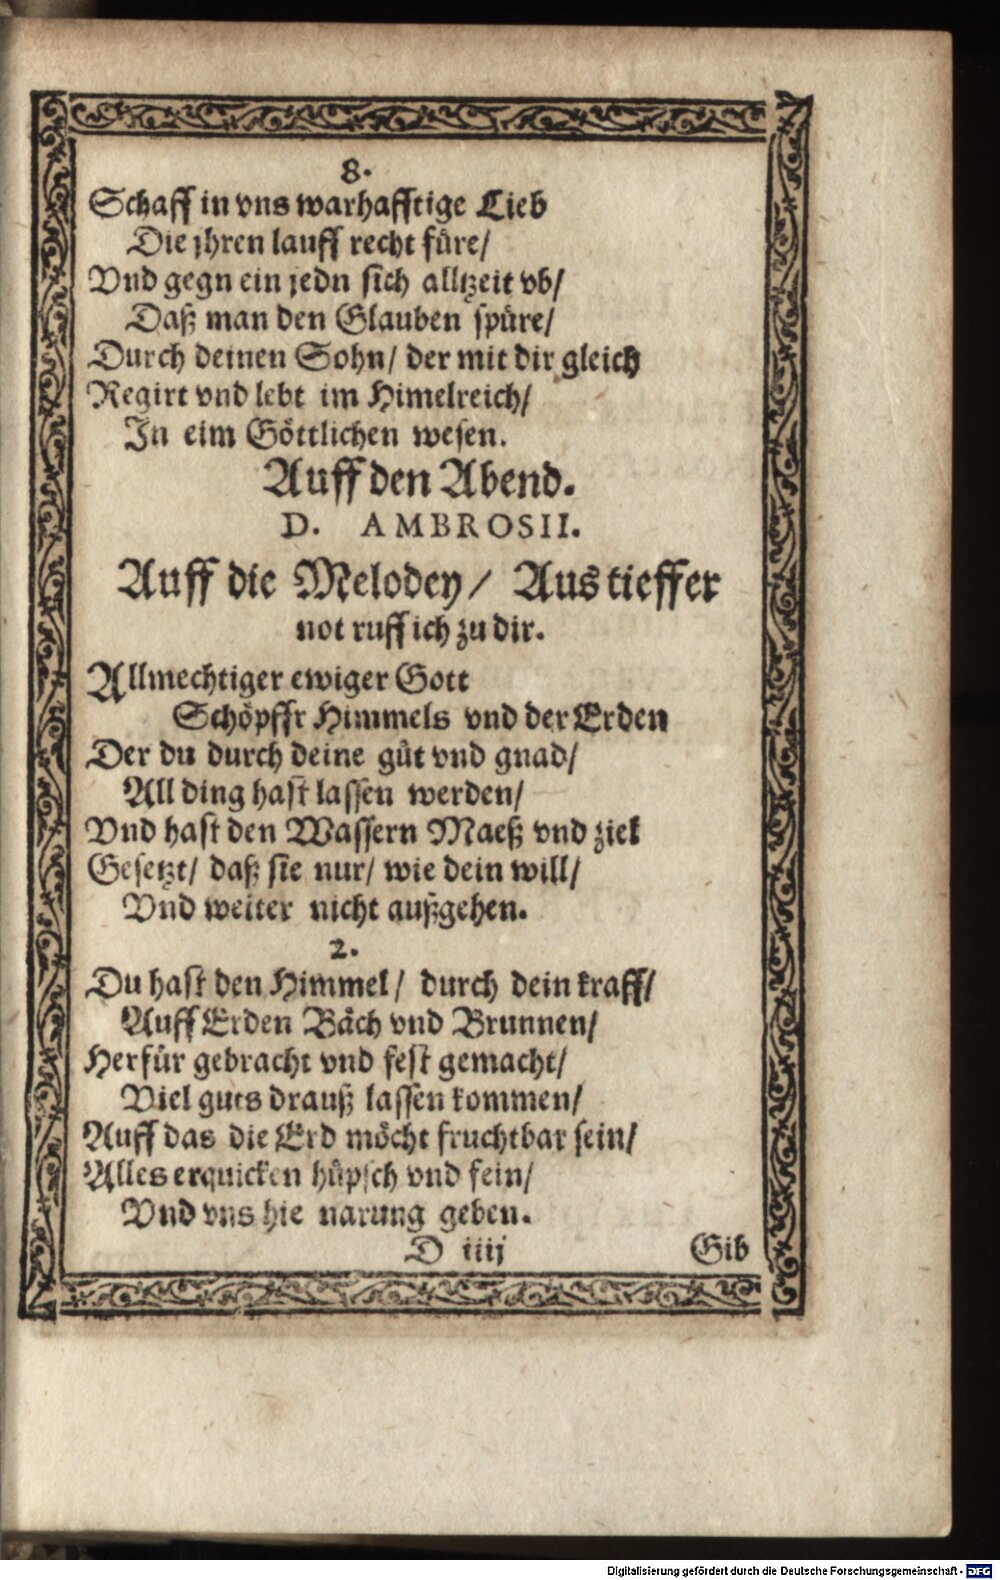 8.
Schaff in vns warhafftige Lieb
Die jhren lauff recht füre/
Vnd gegn ein jedn sich alltzeit vb/
Daß man den Glauben spüre/
Durch deinen Sohn/ der mit dir gleich
Regirt vnd lebt im Himelreich/
In eim Göttlichen wesen.
Auff den Abend.
D. AMBROSII.
Auff die Melodey/ Aus tieffer
not ruff ich zu dir.
Allmechtiger ewiger Gott
Schöpffr Himmels vnd der Erden
Der du durch deine güt vnd gnad/
All ding hast lassen werden/
Vnd hast den Wassern Maeß vnd ziel
Gesetzt/ daß sie nur/ wie dein will/
Vnd weiter nicht außgehen.
2.
Du hast den Himmel/ durch dein kraff/
Auff Erden Bäch vnd Brunnen/
Herfür gebracht vnd fest gemacht/
Viel guts drauß lassen kommen/
Auff das die Erd möcht fruchtbar sein/
Alles erquicken hüpsch vnd fein/
Vnd vns hie narung geben.
D iiij Gib
Digitalisierung gefördert durch die Deutsche Forschungsgemeinschaft - DFG